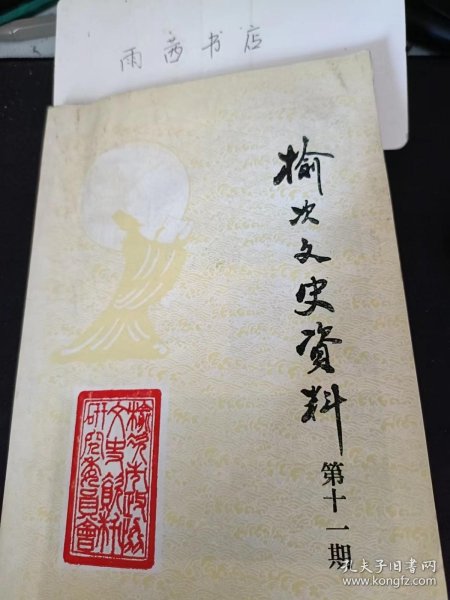 雨茜书店
榆次文史資料
第十一期
榆次市政协
文史資料
研究委員會
孔夫子旧书网
www.kongfz.com